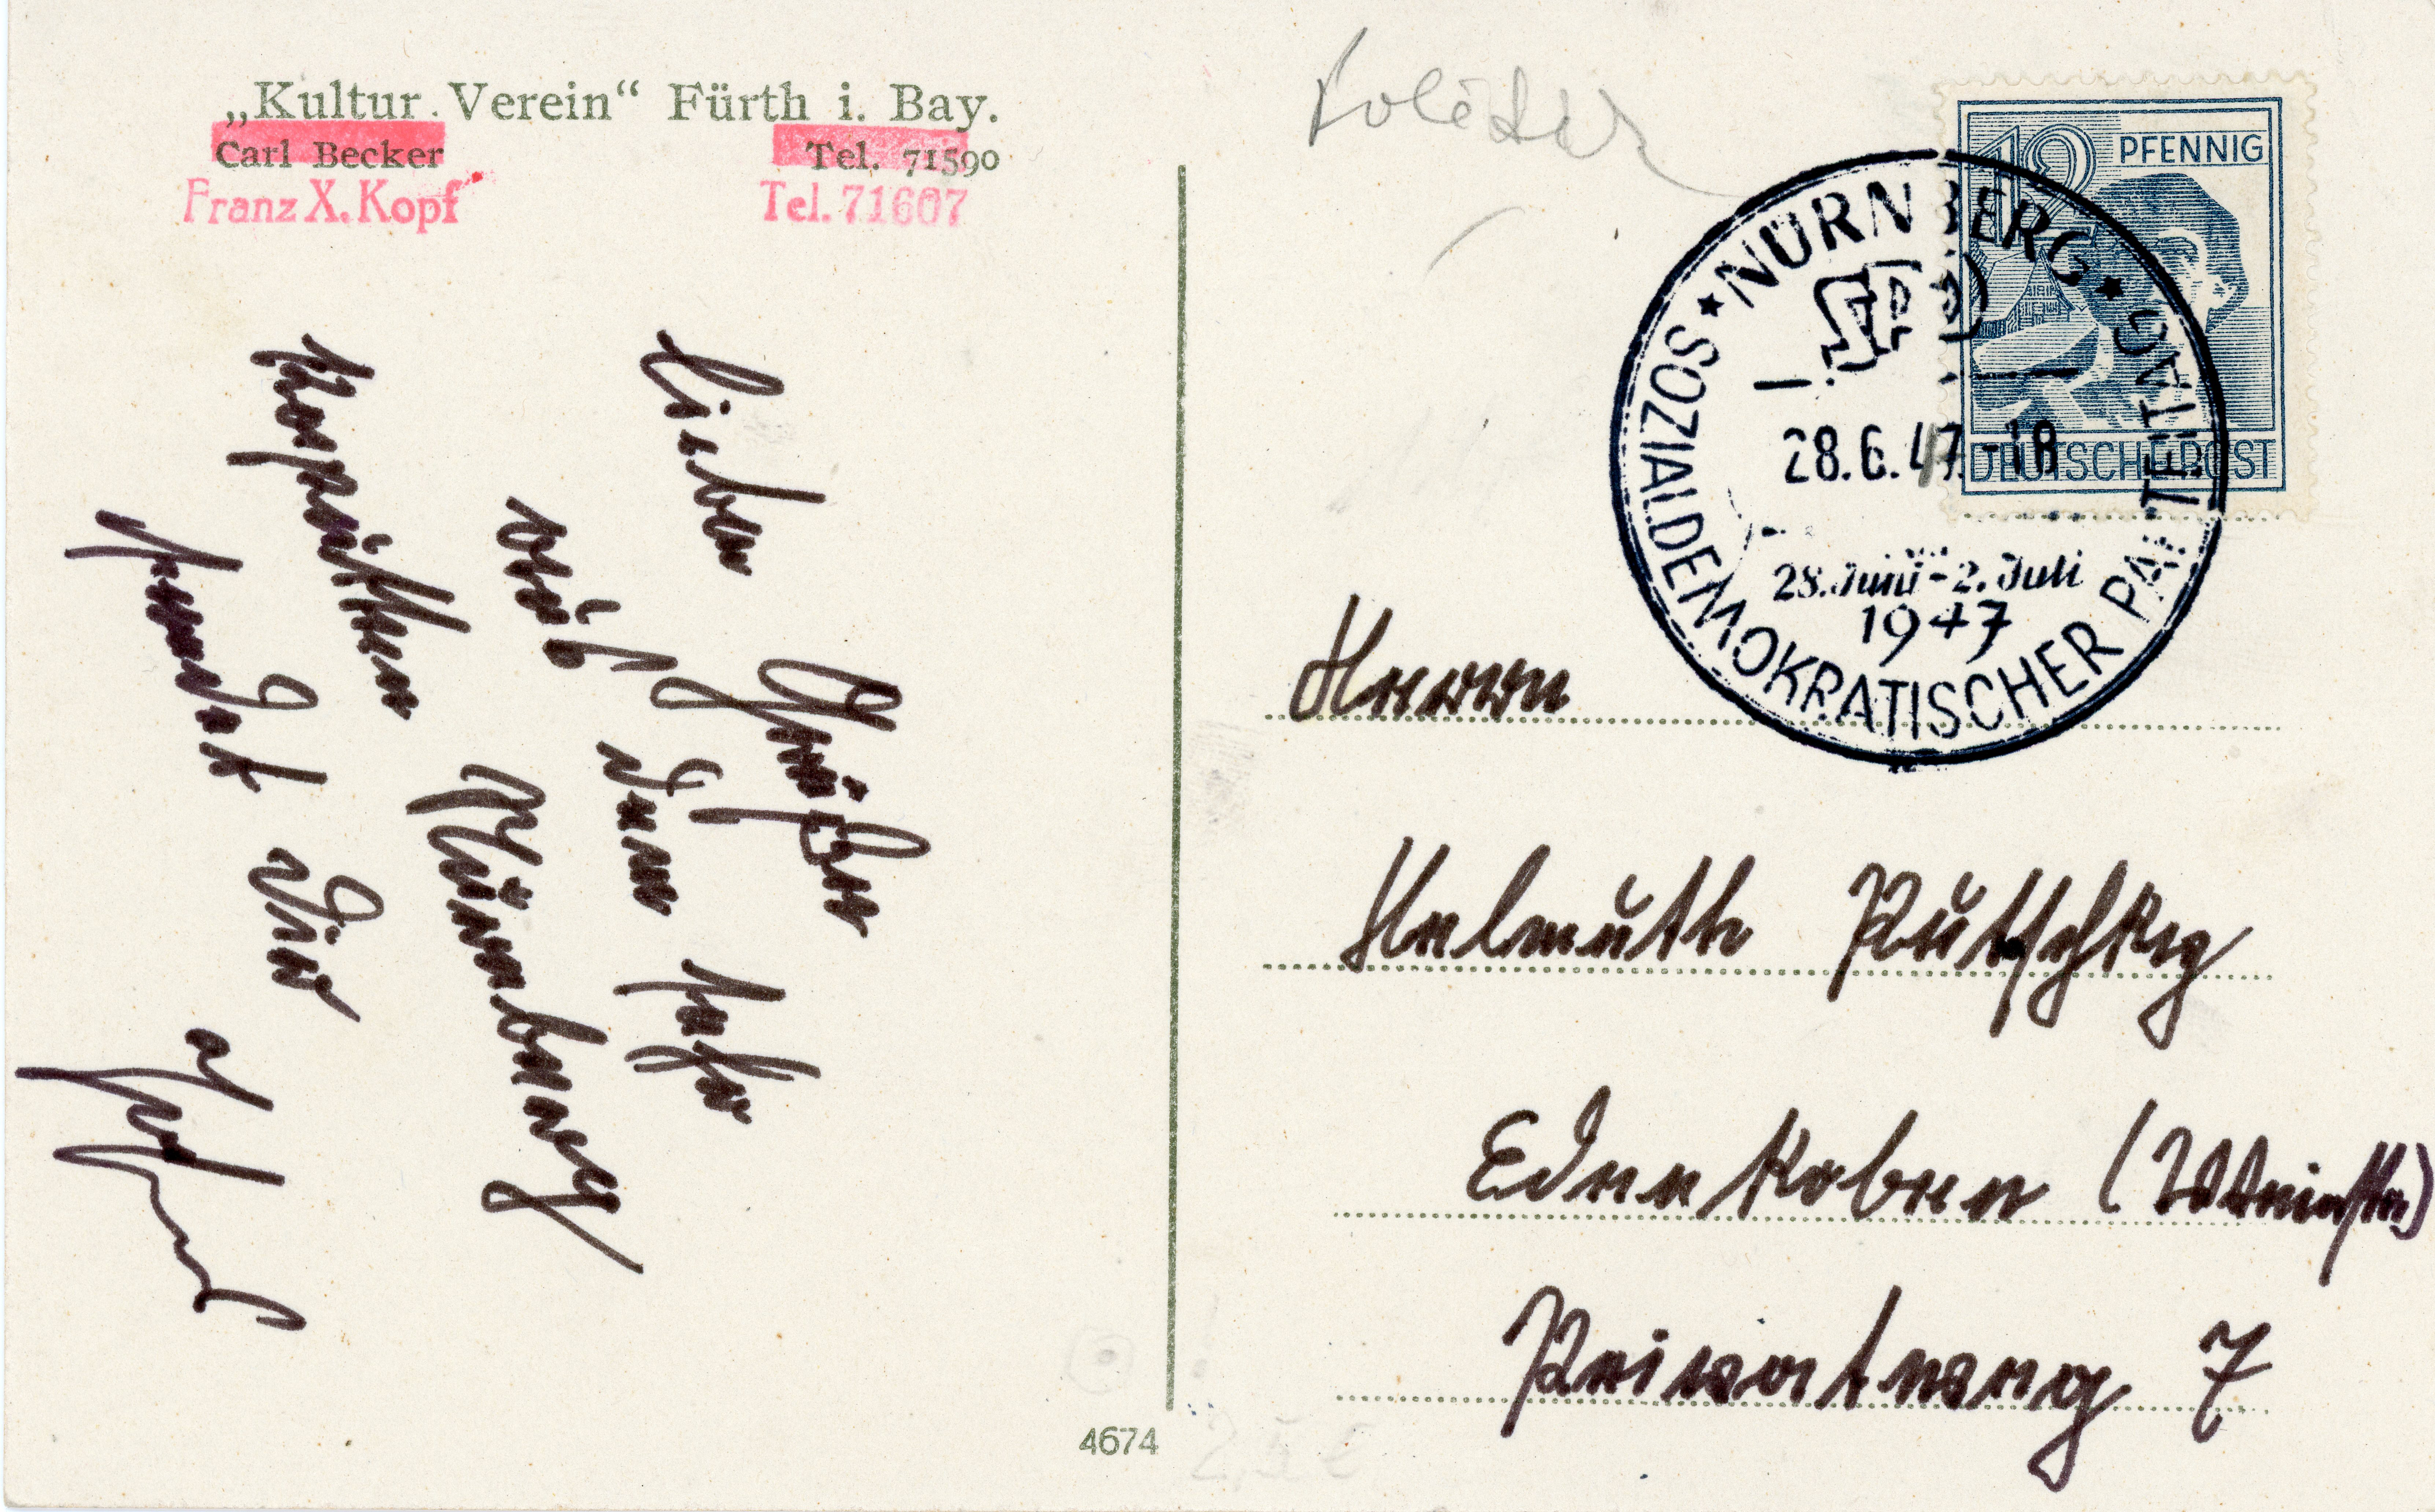 „Kultur-Verein“ Fürth i. Bay.
Carl Becker Tel. 71590
Franz X. Kopf Tel. 71607
Liebe Grüße
aus dem sehr
kaputten Nürnberg
sendet Dir
12 PFENNIG
DEUTSCHE POST
★ NÜRNBERG ★
SPD
28.6.47.-18
28. Juni - 2. Juli
1947
SOZIALDEMOKRATISCHER PARTEITAG
Herrn
Helmuth
Edenkoben (Weinstr)
7
4674